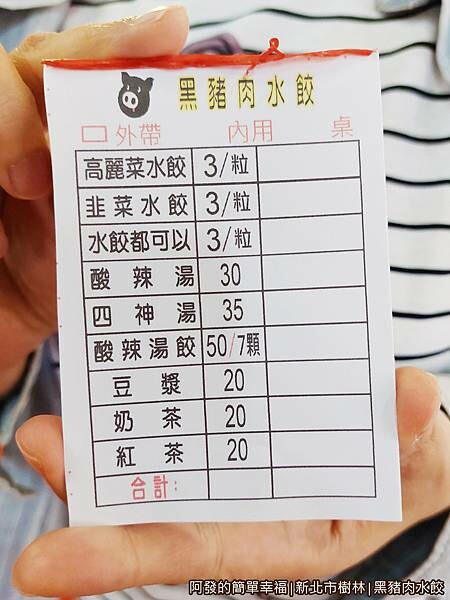 黑豬肉水餃
外帶 內用 桌
高麗菜水餃 3/粒
韭菜水餃 3/粒
水餃都可以 3/粒
酸辣湯 30
四神湯 35
酸辣湯餃 50/7顆
豆漿 20
奶茶 20
紅茶 20
合計:
阿發的簡單幸福|新北市樹林|黑豬肉水餃